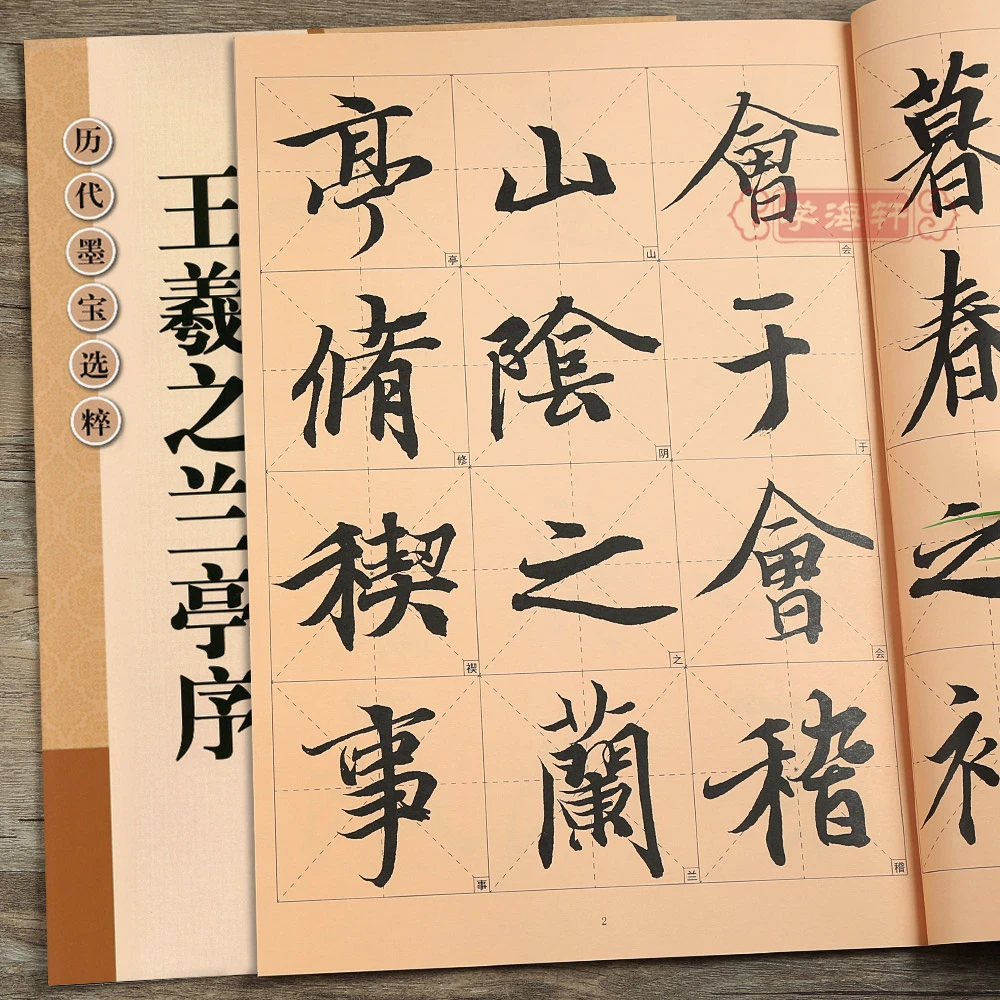 历代墨宝选粹
王羲之兰亭序
暮春之
會于會稽
会于会稽
山陰之蘭
山阴之兰
亭脩稧事
亭修禊事
2
学海轩